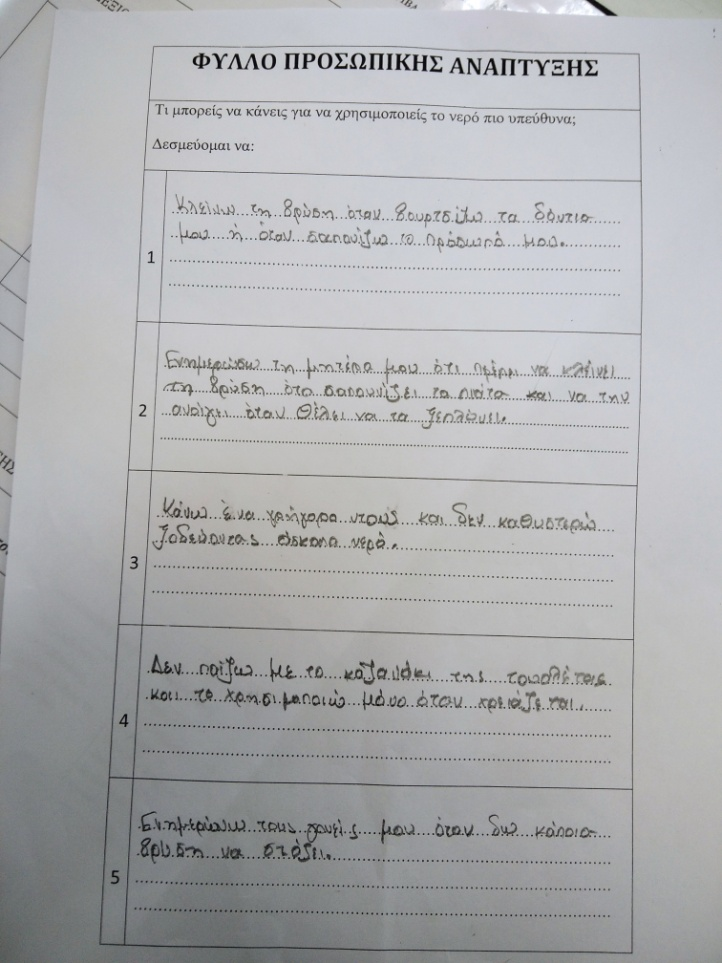 ΦΥΛΛΟ ΠΡΟΣΩΠΙΚΗΣ ΑΝΑΠΤΥΞΗΣ
Τι μπορείς να κάνεις για να χρησιμοποιείς το νερό πιο υπεύθυνα;
Δεσμεύομαι να:
1
Κλείνω τη βρύση όταν βουρτσίζω τα δόντια
μου ή όταν σαπουνίζω το πρόσωπό μου.
2
Ενημερώσω τη μητέρα μου ότι πρέπει να κλείνει
τη βρύση ότα σαπουνίζει τα πιάτα και να την
ανοίγει όταν θέλει να τα ξεπλώνει.
3
Κάνω ένα γρήγορο ντους και δεν καθυστερώ
ξοδεύοντας άσκοπα νερό.
4
Δεν παίζω με το καζανάκι της τουαλέτας
και το χρησιμοποιώ μόνο όταν χρειάζεται.
5
Ενημερώνω τους γονείς μου όταν δω κάποια
βρύση να στάζει.